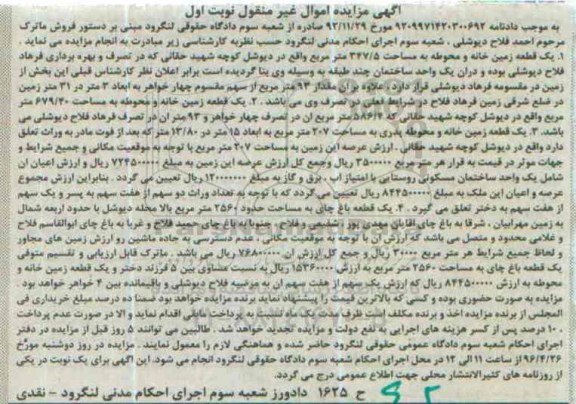 آگهی مزایده اموال غیر منقول نوبت اول
به موجب دادنامه ۹۲۰۹۹۷۱۴۲۰۳۰۰۶۹۲ مورخ ۹۲/۱۱/۲۹ صادره از شعبه سوم دادگاه حقوقی لنگرود مبنی بر دستور فروش ماترک
مرحوم احمد فلاح دیوشلی ، شعبه سوم اجرای احکام مدنی لنگرود حسب نظریه کارشناسی زیر مبادرت به انجام مزایده می نماید .
۱. یک قطعه زمین خانه و محوطه به مساحت ۳۴۷/۵ مترمربع واقع در دیوشل کوچه شهید حقانی که در تصرف و بهره برداری فرهاد
فلاح دیوشلی بوده و در آن یک واحد ساختمان چند طبقه به وسیله وی بنا گردیده است برابر اعلان نظر کارشناس قبلی این بخش از
زمین در مقسومه فرهاد دیوشلی قرار دارد . علاوه بر آن مقدار ۹۳ متر مربع از سهم مقسوم چهار خواهر به ابعاد ۳ متر در ۳۱ متر زمین
در ضلع شرقی زمین فرهاد فلاح در شرایط فعلی در تصرف وی می باشد . ۲. یک قطعه زمین خانه و محوطه به مساحت ۶۷۹/۲۰ متر
مربع واقع در دیوشل کوچه شهید حقانی که ۵۸۶/۲ متر مربع آن در تصرف چهار خواهر و ۹۳ متر آن در تصرف فرهاد فلاح دیوشلی می
باشد. ۳. یک قطعه زمین خانه و محوطه پدری به مساحت ۲۰۷ متر مربع به ابعاد ۱۵ متر در ۱۳/۸۰ متر که بعد از فوت مادر به وراث تعلق
دارد واقع در دیوشل کوچه شهید حقانی . ارزش عرصه این زمین به مساحت ۳۰۷ متر مربع با توجه به موقعیت مکانی و جمیع شرایط و
جهات موثر در قیمت به قرار هر متر مربع ۳۵۰۰۰۰۰ ریال وجمع کل ارزش عرصه این زمین به مبلغ ۷۲۴۵۰۰۰۰۰ ریال و ارزش اعیان آن
شامل یک واحد ساختمان مسکونی روستایی با امتیاز آب ، برق و گاز به مبلغ ۱۲۰۰۰۰۰۰۰ ریال تعیین می گردد . بنابراین ارزش مجموع
عرصه و اعیان این ملک به مبلغ ۸۴۴۵۰۰۰۰۰ ریال تعیین می گردد که با توجه به تعداد وراث دو سهم از هفت سهم به پسر و یک سهم
از هفت سهم به دختر تعلق می گیرد . ۴. یک قطعه باغ چای به مساحت حدود ۲۵۶۰ متر مربع بالا محله دیوشل با حدود اربعه شمال
به زمین مهرابیان ، شرقا به باغ چای آقایان مهدی پور تشدیسی و فلاح ، جنوبا به باغ چای مجید فلاح و غربا به باغ چای ابوالقاسم فلاح
و غلامی محدود و متصل می باشد که ارزش آن با توجه به موقعیت مکانی ، عدم دسترسی به جاده ماشین رو ارزش زمین های مجاور
و لحاظ جمیع شرایط هر متر مربع ۳۰۰۰۰۰ ریال و جمع کل ارزش آن ۷۶۸۰۰۰۰۰۰ ریال می باشد . ماترک قابل ارزیابی و تقسیم متوفی
یک قطعه باغ چای به مساحت ۲۵۶۰ متر مربع به ارزش ۱۵۳۶۰۰۰۰۰ ریال به نسبت مساوی بین ۵ فرزند دختر و یک قطعه زمین خانه و
محوطه به ارزش ۸۴۴۵۰۰۰۰۰ ریال که ارزش یک سهم از هفت سهم آن به مرضیه فلاح دیوشلی و باقیمانده بین ۴ خواهر خواهد بود .
مزایده به صورت حضوری بوده و کسی که بالاترین قیمت را پیشنهاد نماید برنده مزایده خواهد بود ضمنا ده درصد مبلغ خریداری فی
المجلس از برنده مزایده اخذ و برنده مکلف است ظرف مدت پرداخت مابقی اقدام نماید و الا در صورت عدم پرداخت
، ۱۰ درصد پس از کسر هزینه های اجرایی به نفع دولت و مزایده تجدید خواهد شد . طالبین می توانند ۵ روز قبل از مزایده در دفتر
اجرای احکام شعبه سوم دادگاه عمومی حقوقی لنگرود حاضر شده و هماهنگی لازم را معمول نمایند . مزایده در روز دوشنبه مورخ
۹۶/۴/۲۶ از ساعت ۱۱ الی ۱۲ در محل اجرای احکام شعبه سوم دادگاه حقوقی لنگرود انجام می شود. این آگهی برای یک نوبت در یکی
از روزنامه های کثیرالانتشار محلی جهت اطلاع عمومی درج می گردد.
ح ۱۶۲۵ دادورز شعبه سوم اجرای احکام مدنی لنگرود - نقدی